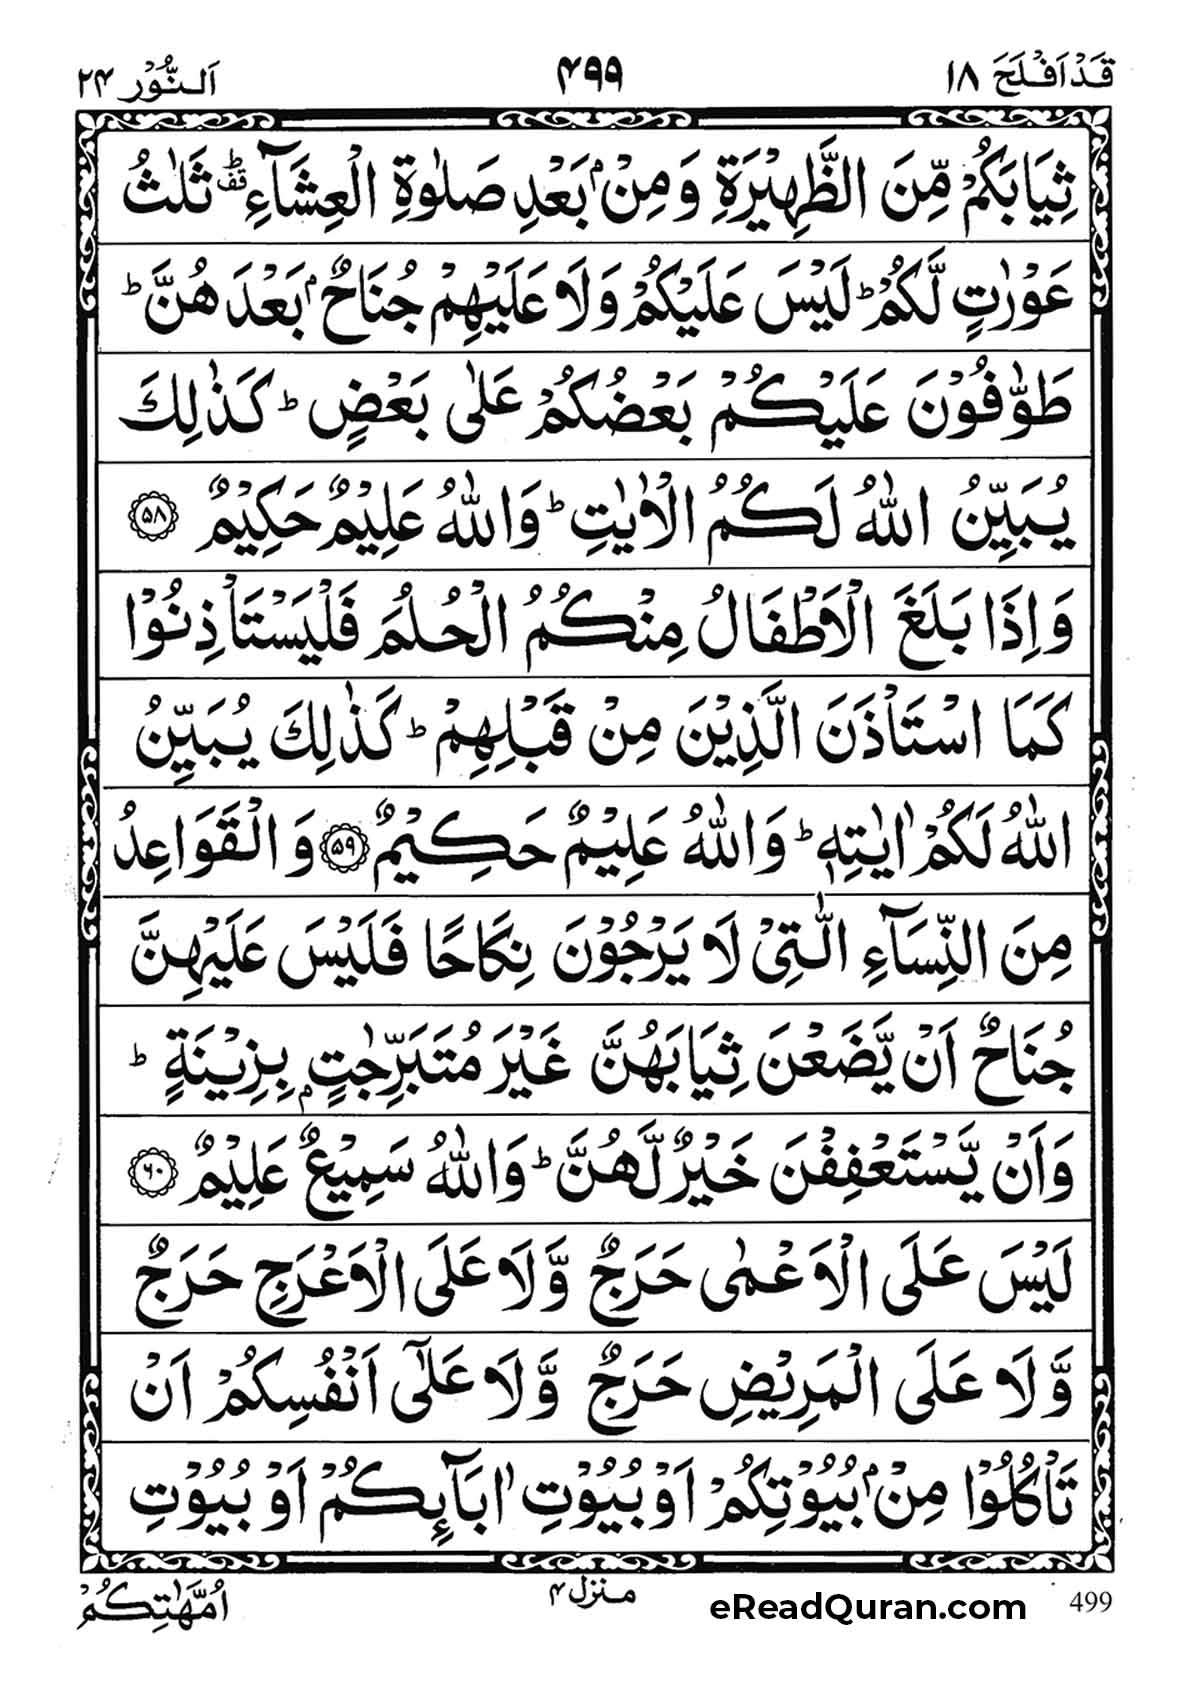 قَدْ اَفْلَحَ ١٨
٤٩٩
اَلنُّوْر ٢٤
ثِيَابَكُمْ مِّنَ الظَّهِيْرَةِ وَمِنْۢ بَعْدِ صَلٰوةِ الْعِشَآءِ ؕقف ثَلٰثُ
عَوْرٰتٍ لَّكُمْ ؕ لَيْسَ عَلَيْكُمْ وَلَا عَلَيْهِمْ جُنَاحٌۢ بَعْدَهُنَّ ؕ
طَوّٰفُوْنَ عَلَيْكُمْ بَعْضُكُمْ عَلٰى بَعْضٍ ؕ كَذٰلِكَ
يُبَيِّنُ اللّٰهُ لَكُمُ الْاٰيٰتِ ؕ وَاللّٰهُ عَلِيْمٌ حَكِيْمٌ ﴿٥٨﴾
وَاِذَا بَلَغَ الْاَطْفَالُ مِنْكُمُ الْحُلُمَ فَلْيَسْتَاْذِنُوْا
كَمَا اسْتَاْذَنَ الَّذِيْنَ مِنْ قَبْلِهِمْ ؕ كَذٰلِكَ يُبَيِّنُ
اللّٰهُ لَكُمْ اٰيٰتِهٖ ؕ وَاللّٰهُ عَلِيْمٌ حَكِيْمٌ ﴿٥٩﴾ وَالْقَوَاعِدُ
مِنَ النِّسَآءِ الّٰتِيْ لَا يَرْجُوْنَ نِكَاحًا فَلَيْسَ عَلَيْهِنَّ
جُنَاحٌ اَنْ يَّضَعْنَ ثِيَابَهُنَّ غَيْرَ مُتَبَرِّجٰتٍۭ بِزِيْنَةٍ ؕ
وَاَنْ يَّسْتَعْفِفْنَ خَيْرٌ لَّهُنَّ ؕ وَاللّٰهُ سَمِيْعٌ عَلِيْمٌ ﴿٦٠﴾
لَيْسَ عَلَى الْاَعْمٰى حَرَجٌ وَّلَا عَلَى الْاَعْرَجِ حَرَجٌ
وَّلَا عَلَى الْمَرِيْضِ حَرَجٌ وَّلَا عَلٰٓى اَنْفُسِكُمْ اَنْ
تَاْكُلُوْا مِنْۢ بُيُوْتِكُمْ اَوْ بُيُوْتِ اٰبَآئِكُمْ اَوْ بُيُوْتِ
اُمَّهٰتِكُمْ
منزل ٤
eReadQuran.com
499